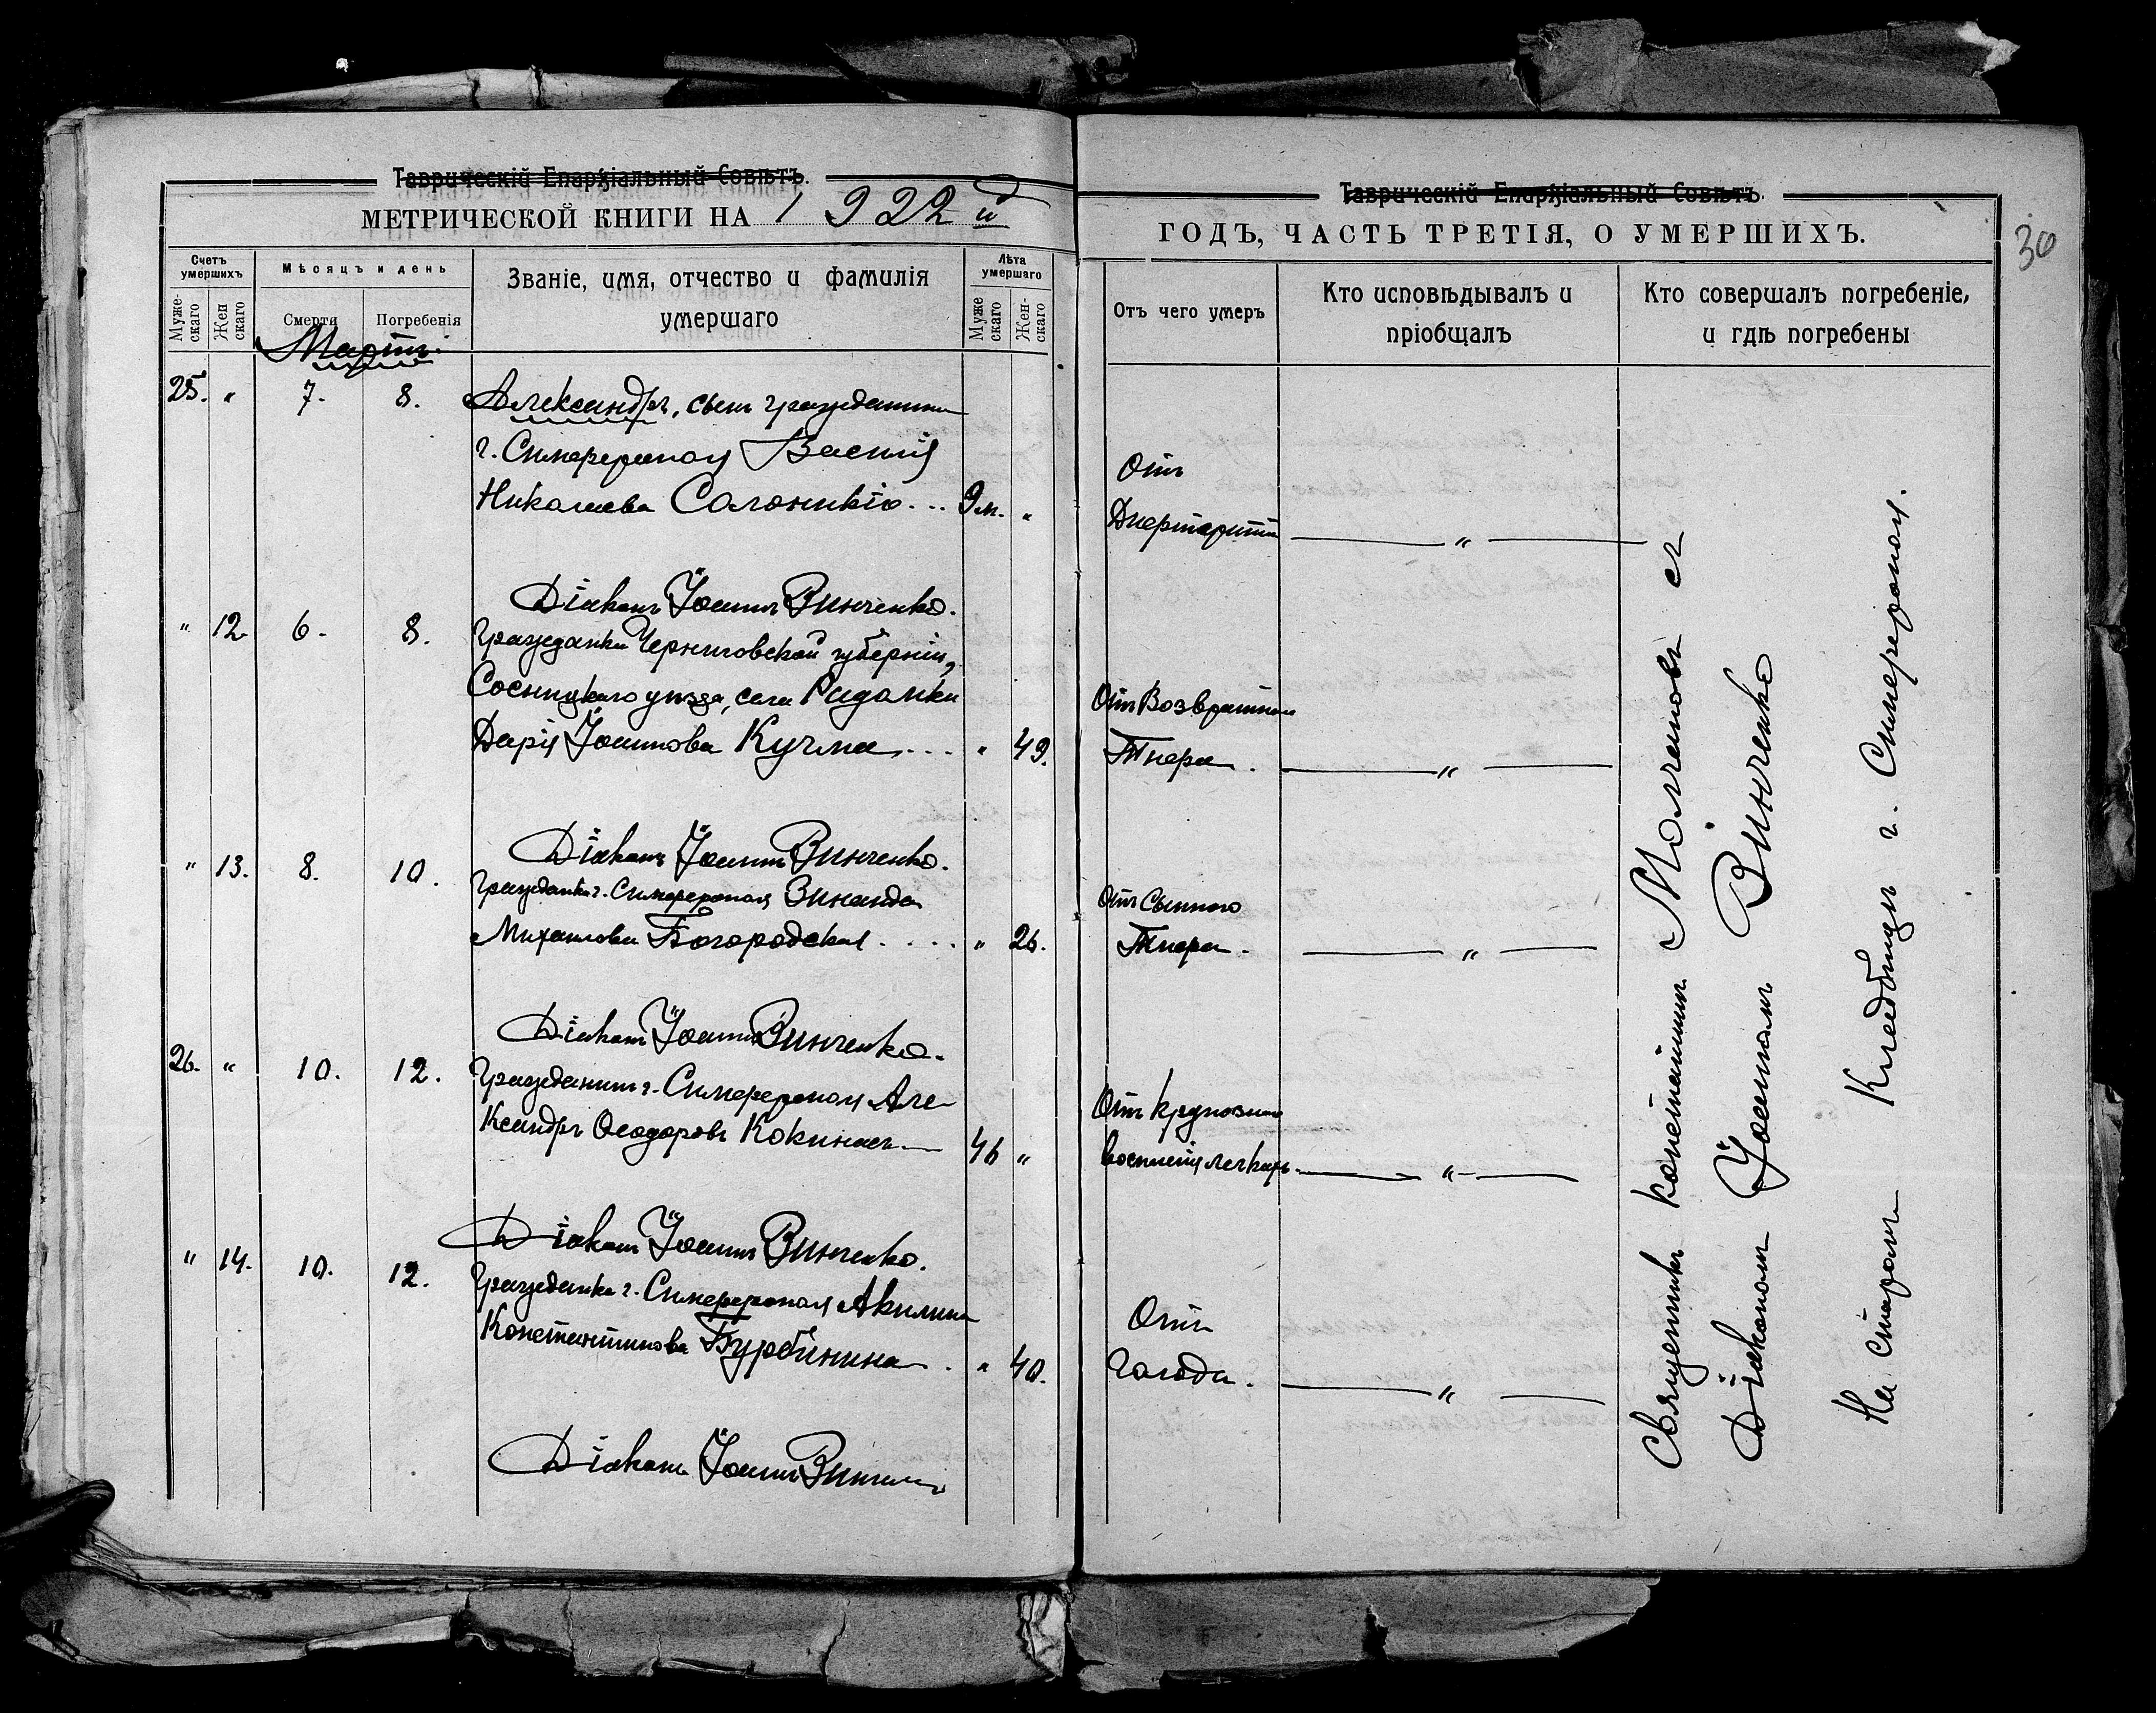 Таврическій Епархіальный Совѣтъ.
МЕТРИЧЕСКОЙ КНИГИ НА 1922 й
Счетъ умершихъ
Муже-скаго
Жен скаго
Мѣсяцъ и день
Смерти
Погребенія
Званіе, имя, отчество и фамилія
умершаго
Лѣта умершаго
Муже скаго
Жен-скаго
Мартъ.
25. " 7. 8. Александръ, сынъ гражданина
г. Симферополя Василія
Николаева Салоникіо... 9 м. "
Діаконъ Іоаннъ Винченко.
" 12. 6. 8. Гражданка Черниговской губерніи,
Сосницкаго уѣзда, села
Дарія Іоаннова Кучма.... " 49.
Діаконъ Іоаннъ Винченко.
" 13. 8. 10. Гражданка г. Симферополя Зинаида
Михаилова Богородская..... " 26.
Діаконъ Іоаннъ Винченко.
26. " 10. 12. Гражданинъ г. Симферополя Але-
ксандръ Ѳеодоровъ Кокинасъ 46 "
Діаконъ Іоаннъ Винченко.
" 14. 10. 12. Гражданка г. Симферополя Акилина
Константинова Бурбинина. " 40.
Діаконъ Іоаннъ Винченко
Таврическій Епархіальный Совѣтъ.
ГОДЪ, ЧАСТЬ ТРЕТІЯ, О УМЕРШИХЪ.
30
Отъ чего умеръ
Кто исповѣдывалъ и
пріобщалъ
Кто совершалъ погребеніе,
и гдѣ погребены
Отъ
— " —
Отъ Возвратнаго
Тифа. — " —
Отъ Сыпного
Тифа. — " —
Отъ Крупознаго
воспаленія легкихъ. — " —
Отъ
голода. — " —
Священникъ Константинъ Молчановъ съ
Діакономъ Іоанномъ Винченко
На старомъ Кладбищѣ г. Симферополя.